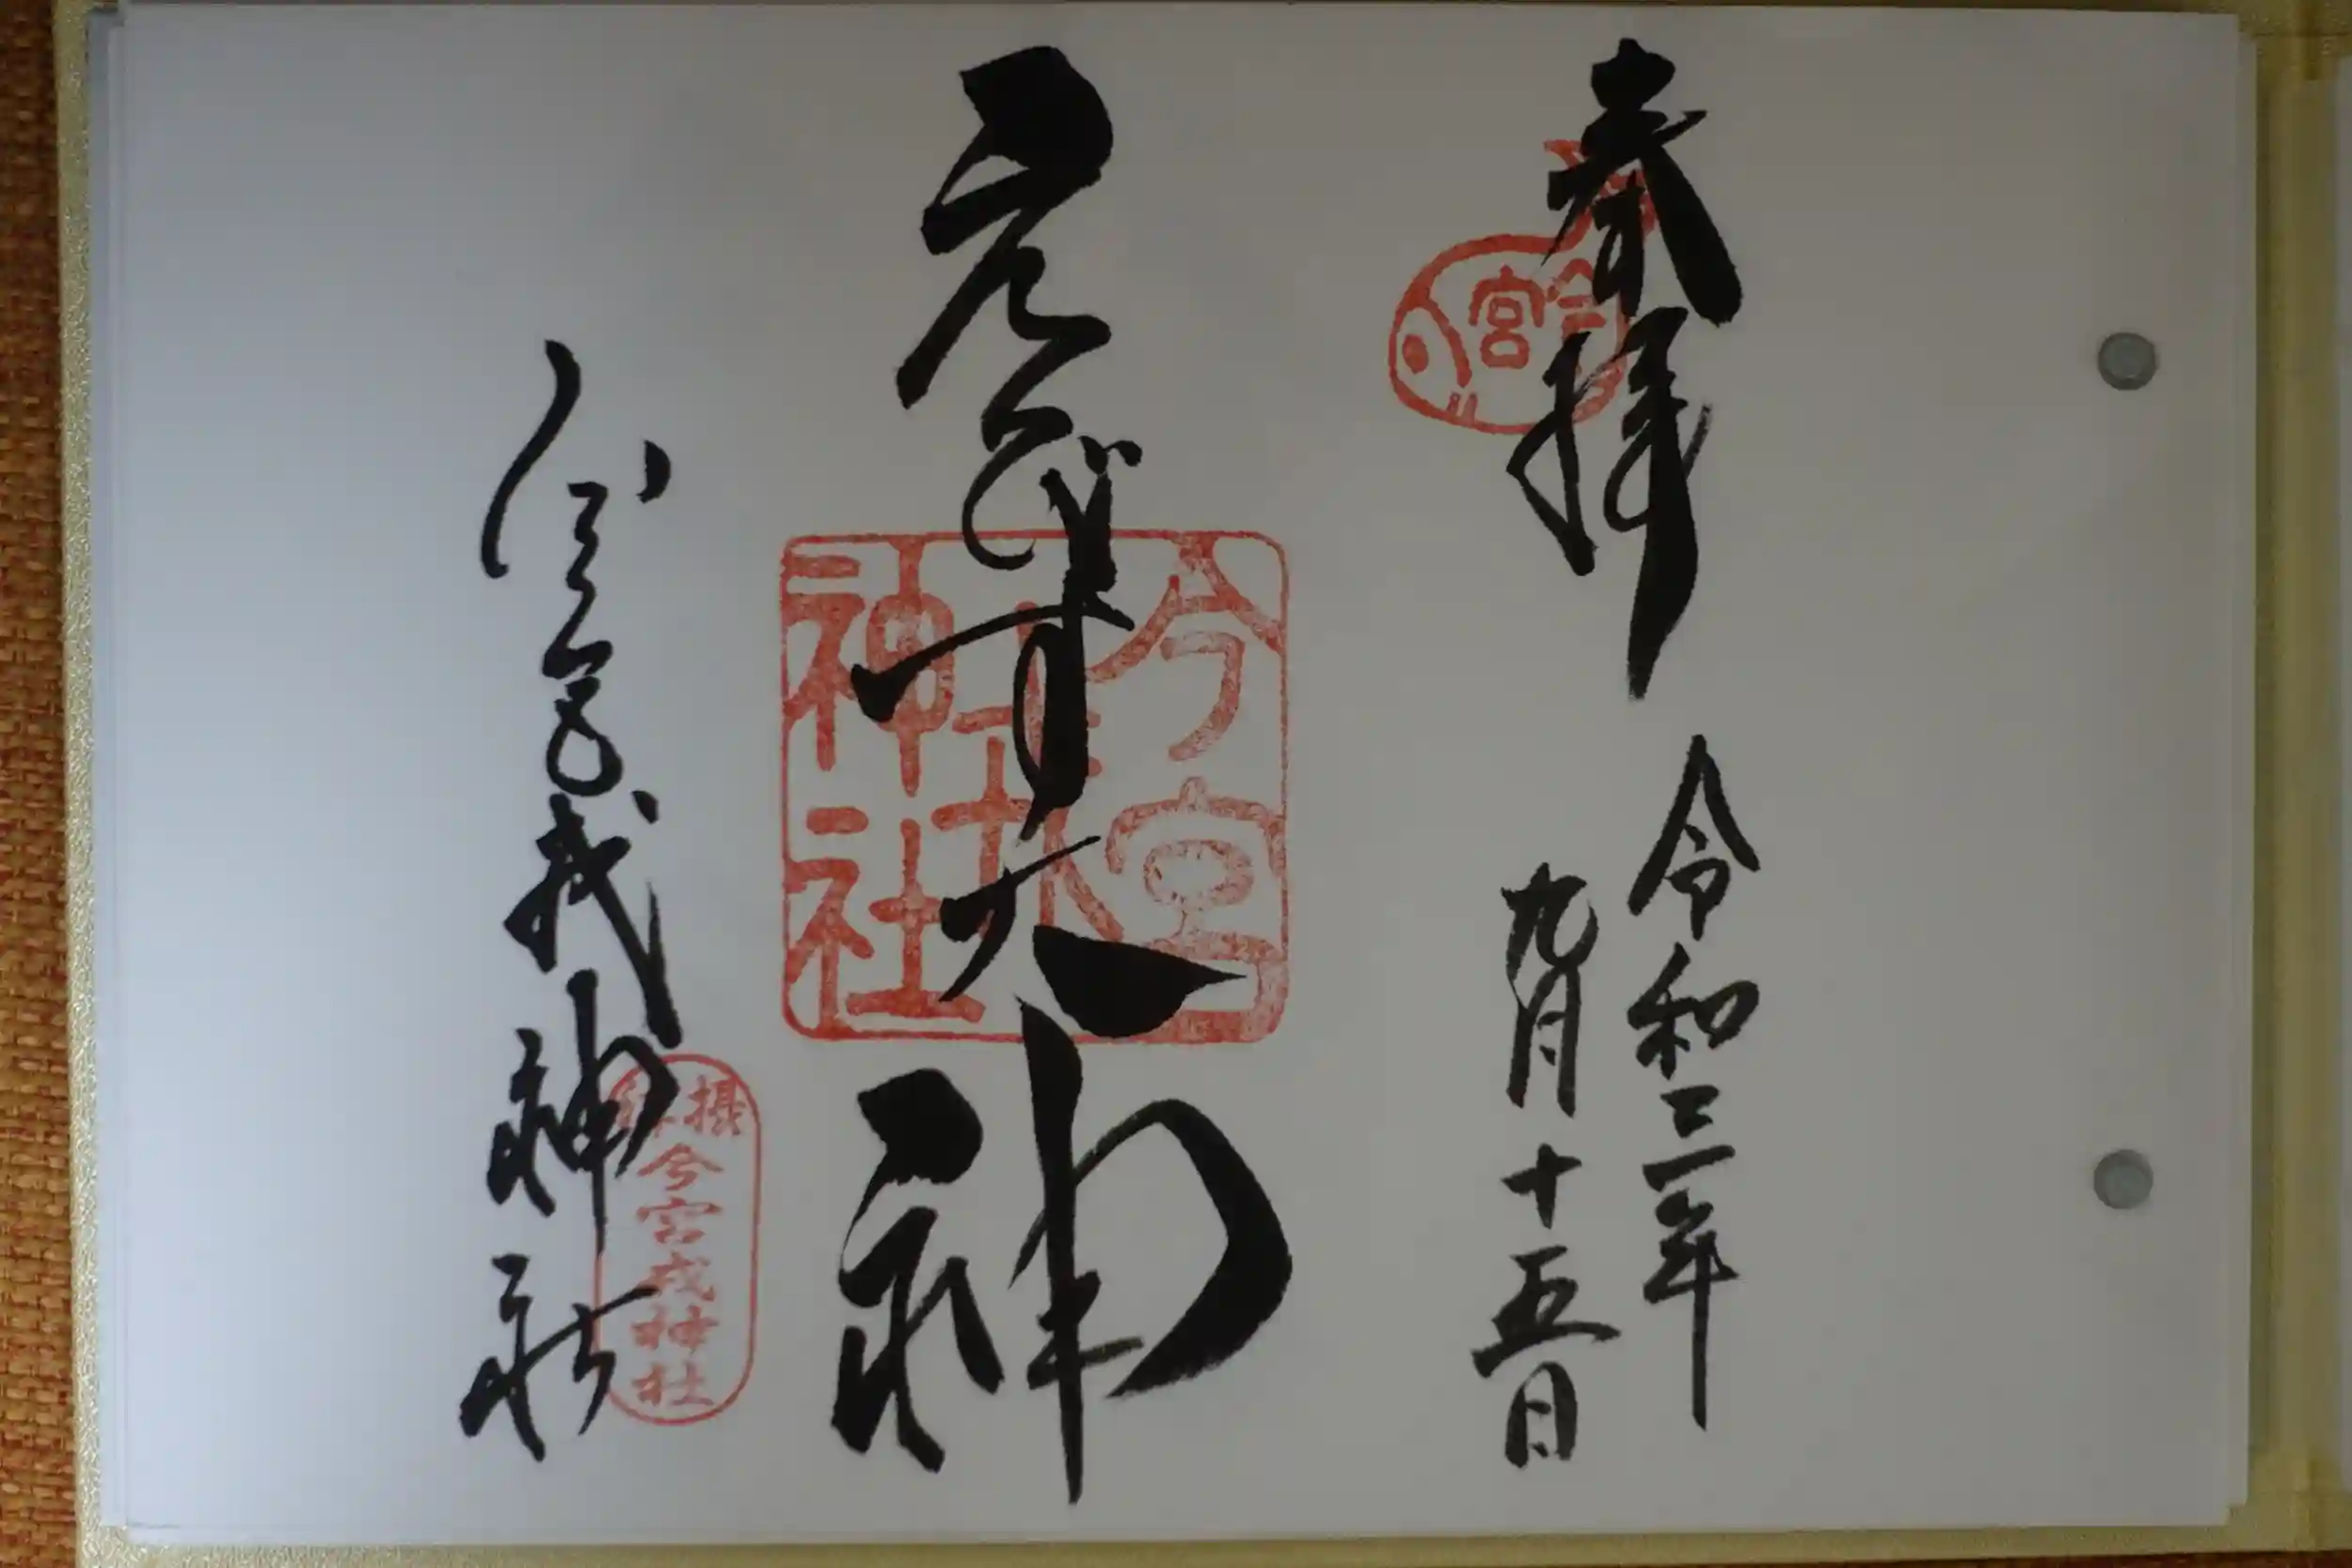 奉拝
令和三年
九月十五日
えびす大神
今宮戎神社
今宮
今宮
神社
今宮戎神社